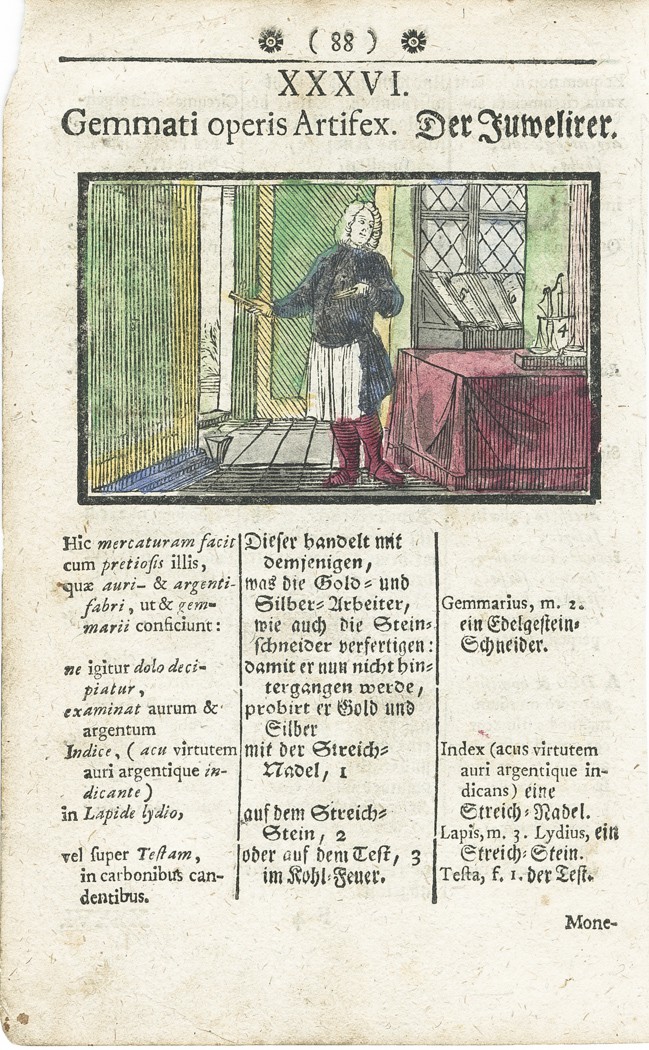 ( 88 )
XXXVI.
Gemmati operis Artifex. Der Juwelirer.
4
Hic mercaturam facit
cum pretiosis illis,
quæ auri- & argenti-
fabri, ut & gem-
marii conficiunt:
ne igitur dolo deci-
piatur,
examinat aurum &
argentum
Indice, (acu virtutem
auri argentique in-
dicante)
in Lapide lydio,
vel super Testam,
in carbonibus can-
dentibus.
Dieser handelt mit
demjenigen,
was die Gold- und
Silber-Arbeiter,
wie auch die Stein-
schneider verfertigen:
damit er nun nicht hin-
tergangen werde,
probirt er Gold und
Silber
mit der Streich-
Nadel, 1
auf dem Streich-
Stein, 2
oder auf dem Test, 3
im Kohl-Feuer.
Gemmarius, m. 2.
ein Edelgestein-
Schneider.
Index (acus virtutem
auri argentique in-
dicans) eine
Streich-Nadel.
Lapis, m. 3. Lydius, ein
Streich-Stein.
Testa, f. 1. der Test.
Mone-